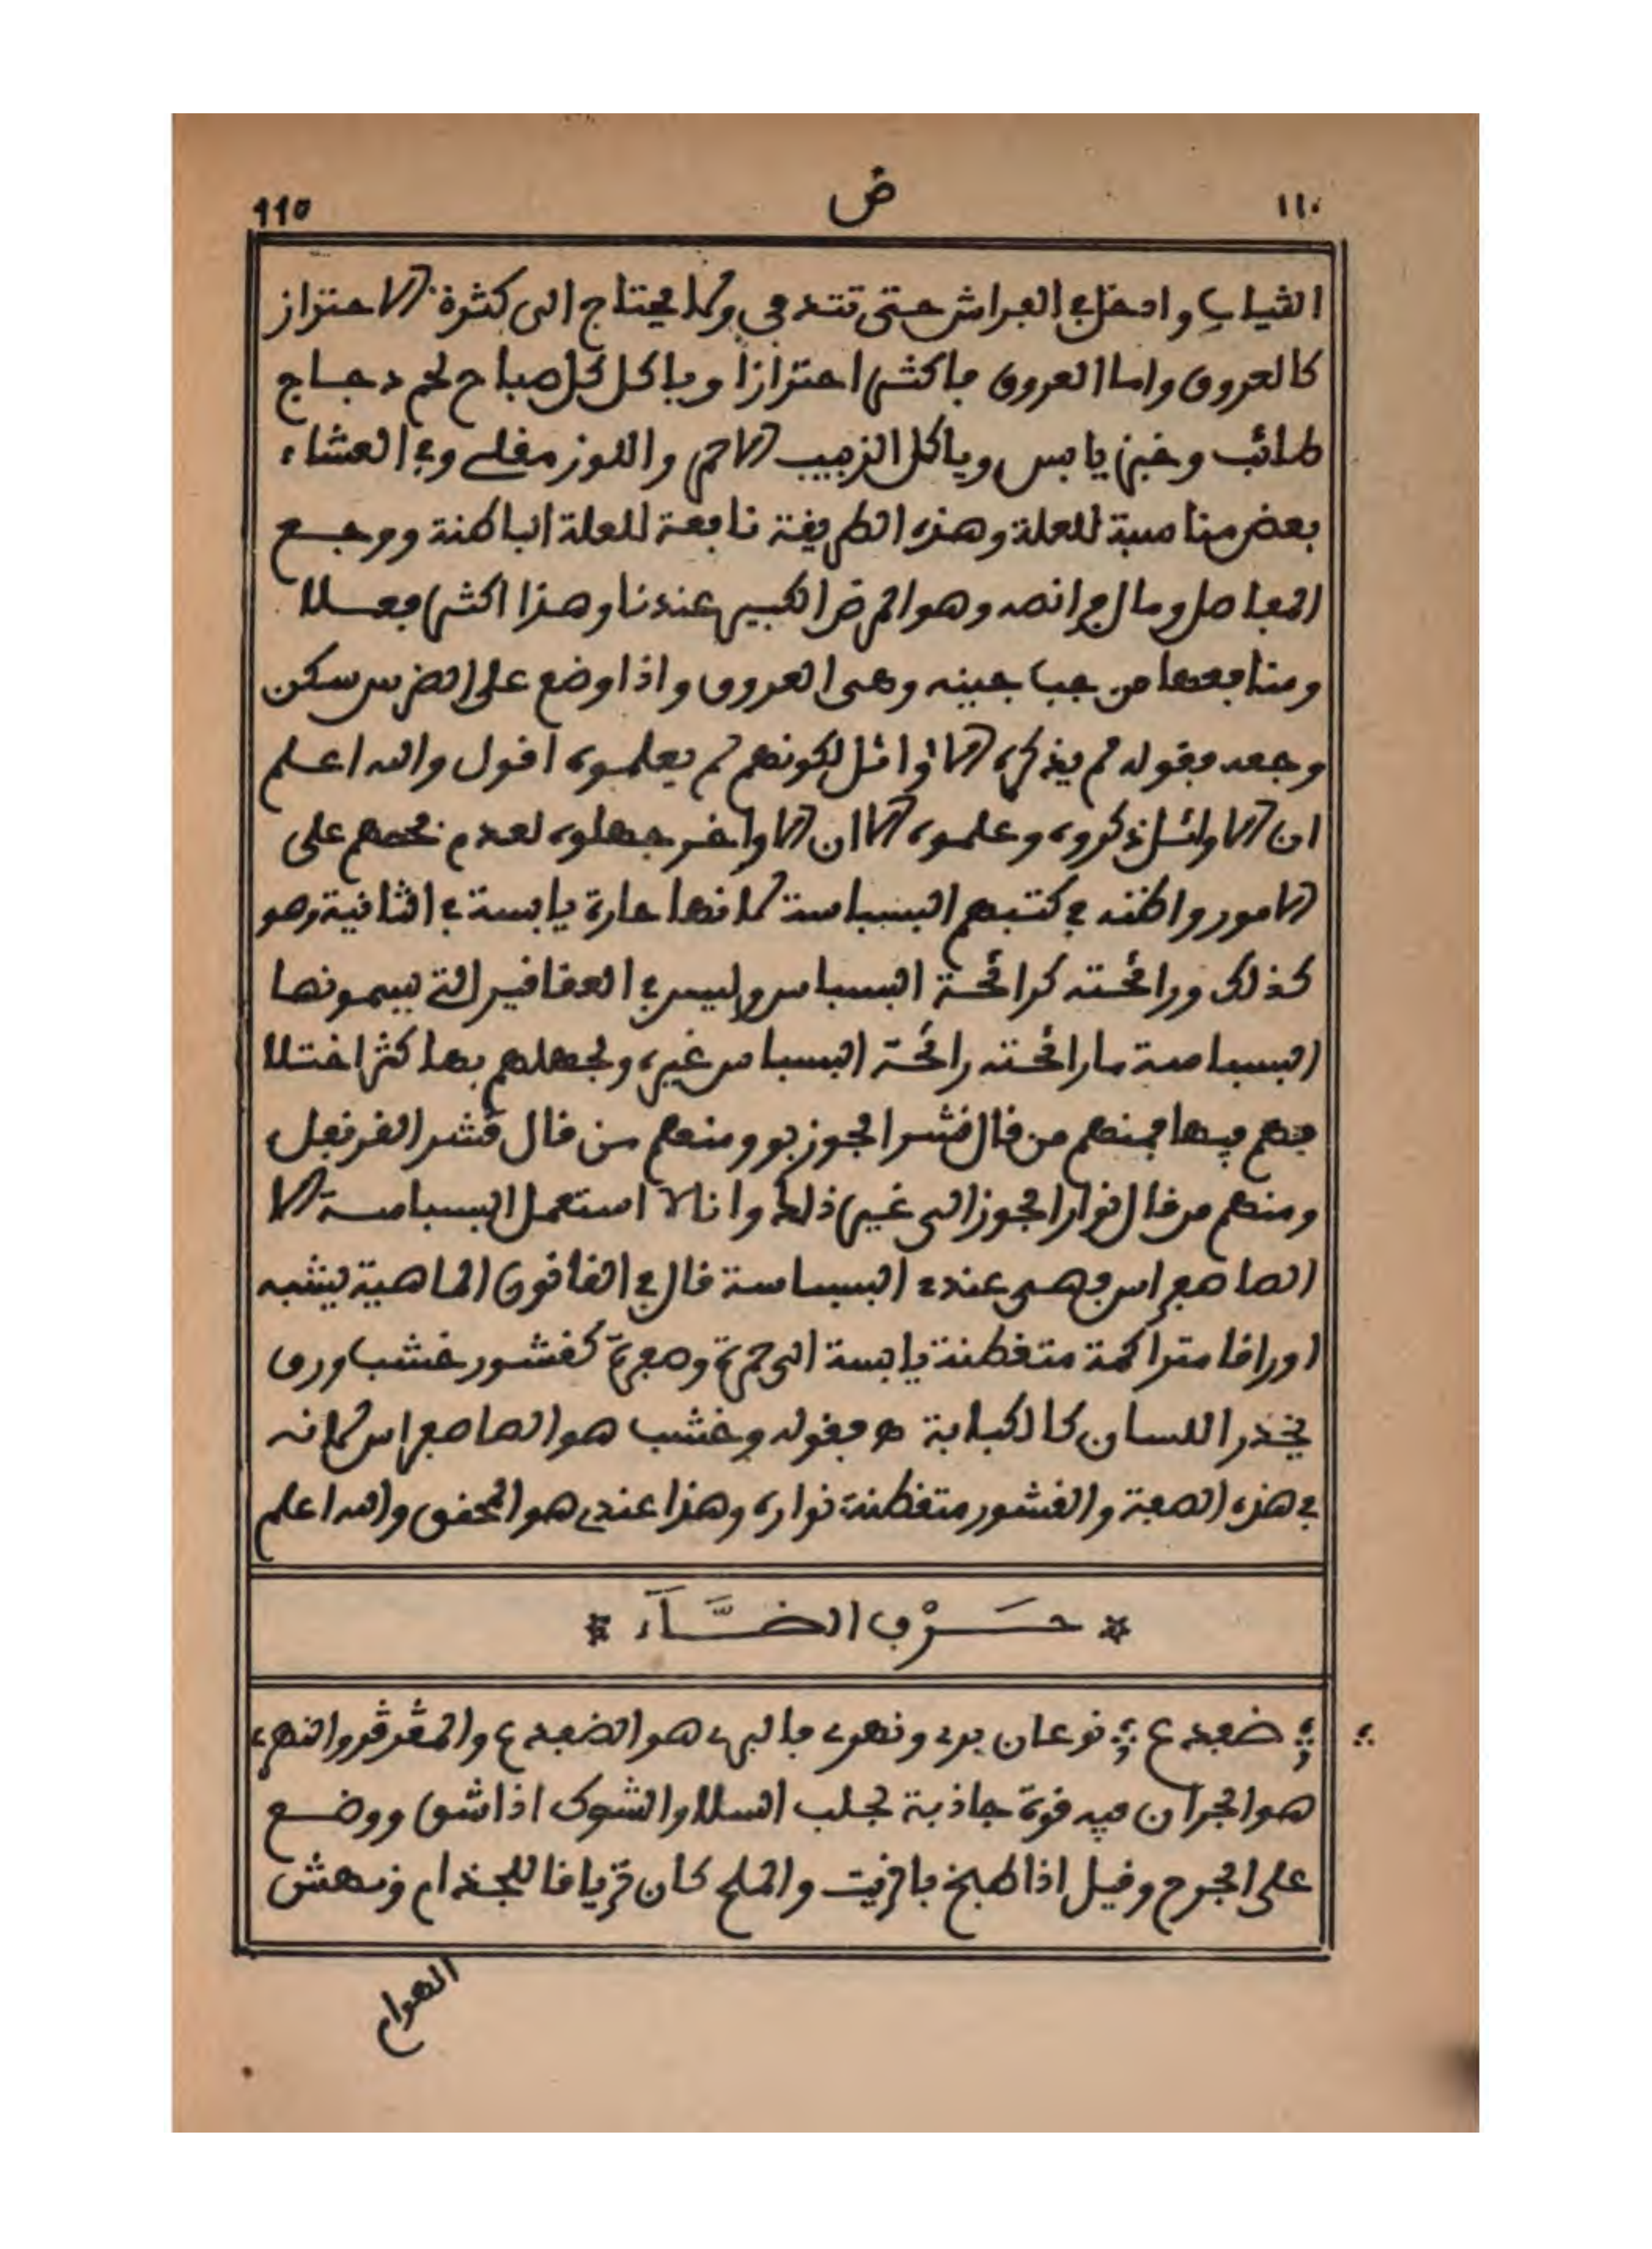 ١١٠ ض 110
الثياب وادخل في الفراش حتى تتدفى ولا يحتاج الى كثرة الاحتراز
كالعروق واما العروق فاكثر احترازا وياكل كل صباح لحم دجاج
طائب وخبز يابس وياكل الزبيب الاحمر واللوز مقلي وفي العشاء
بعض مناسبة للعلة وهذه الطريقة نابعة للعلة الباطنة ووجع
المفاصل وما لم انصه وهو المرض الكبير عندنا وهذا اكثر فعلا
ومنافعها من جبا جينه وهى العروق واذا وضع على الضرس سكن
وجعه فقوله لم يذكره الاوائل لكونهم لم يعلموه اقول والله اعلم
ان الاوائل ذكروه وعلموه الا ان الاواخر جهلوه لعدم فحصهم على
الامور واظنه في كتبهم البسباسة لانها حارة يابسة في الثانية وهو
كذلك ورائحته كرائحة البسباس وليس في العقاقير التي يسمونها
البسباسة ما رائحته رائحة البسباس غيره ولجهلهم بها كثر اختلا
فهم فيها فمنهم من قال قشر الجوز بو ومنهم من قال قشر القرنفل
ومنهم من قال نوار الجوز الى غير ذلك وانا لا استعمل البسباسة الا
الصاصفراس فهى عندي البسباسة قال في القانون الماهية يشبه
اوراقا متراكمة متغطنة يابسة الى حمرة وصفرة كقشور خشب وورق
يخذر اللسان كالكبابة ه فقوله وخشب هو الصاصفراس لانه
في هذه الصفة والقشور متغطنة نواره وهذا عندي هو المحقق والله اعلم
* حَرْف الضَّآء *
ضفدع نوعان بري ونهري فالبري هو الضفدع والمڤرڤر والنهري
هو الجران فيه قوة جاذبة لجلب السلا والشوك اذا شق ووضع
على الجرح وقيل اذا طبخ بالزيت والملح كان ترياقا للجذام ونهش
الهوام